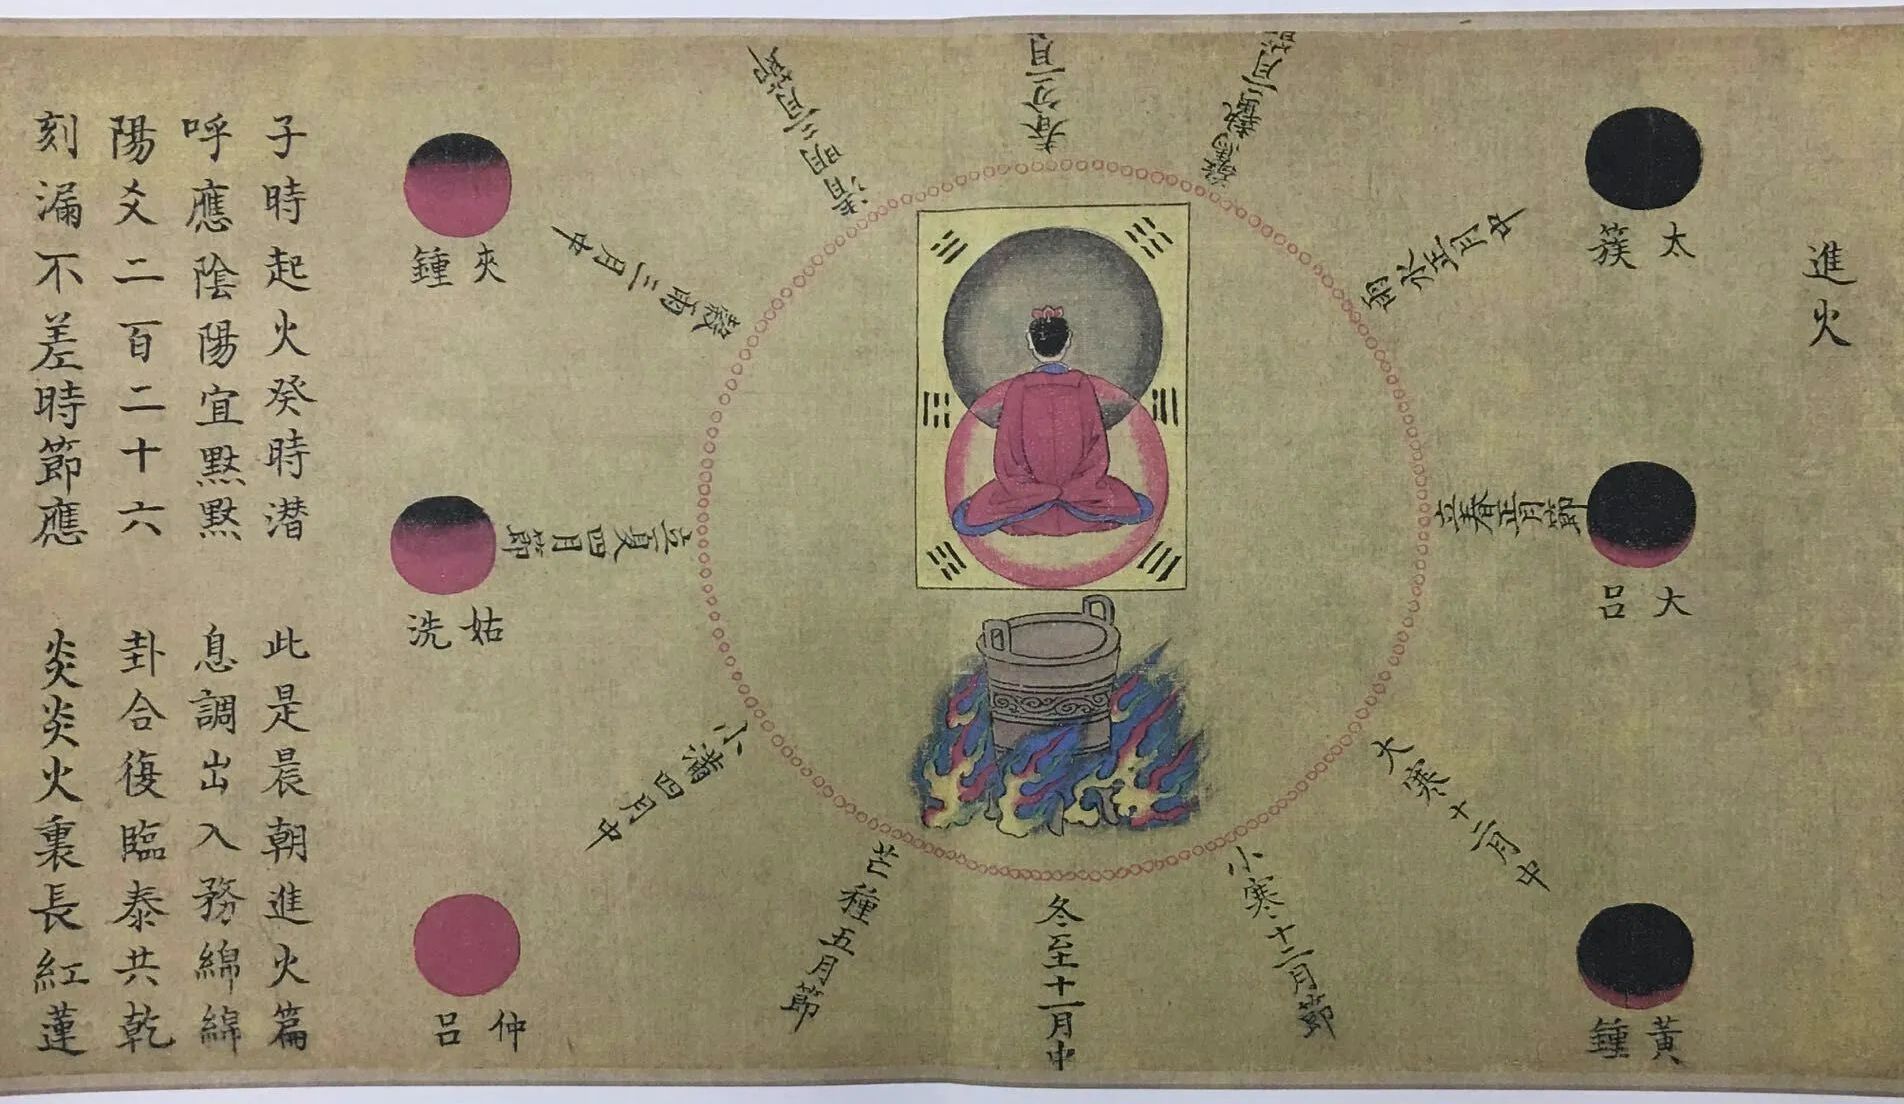 進火
太簇
大呂
黃鍾
冬至十一月中
小寒十二月節
大寒十二月中
立春正月節
雨水正月中
驚蟄二月節
春分二月
清明三月節
穀雨三月中
立夏四月節
小滿四月中
芒種五月節
夾鍾
姑洗
仲呂
子時起火癸時潜 此是晨朝進火篇
呼應陰陽宜黙黙 息調出入務綿綿
陽爻二百二十六 卦合復臨泰共乾
刻漏不差時節應 炎炎火裏長紅蓮